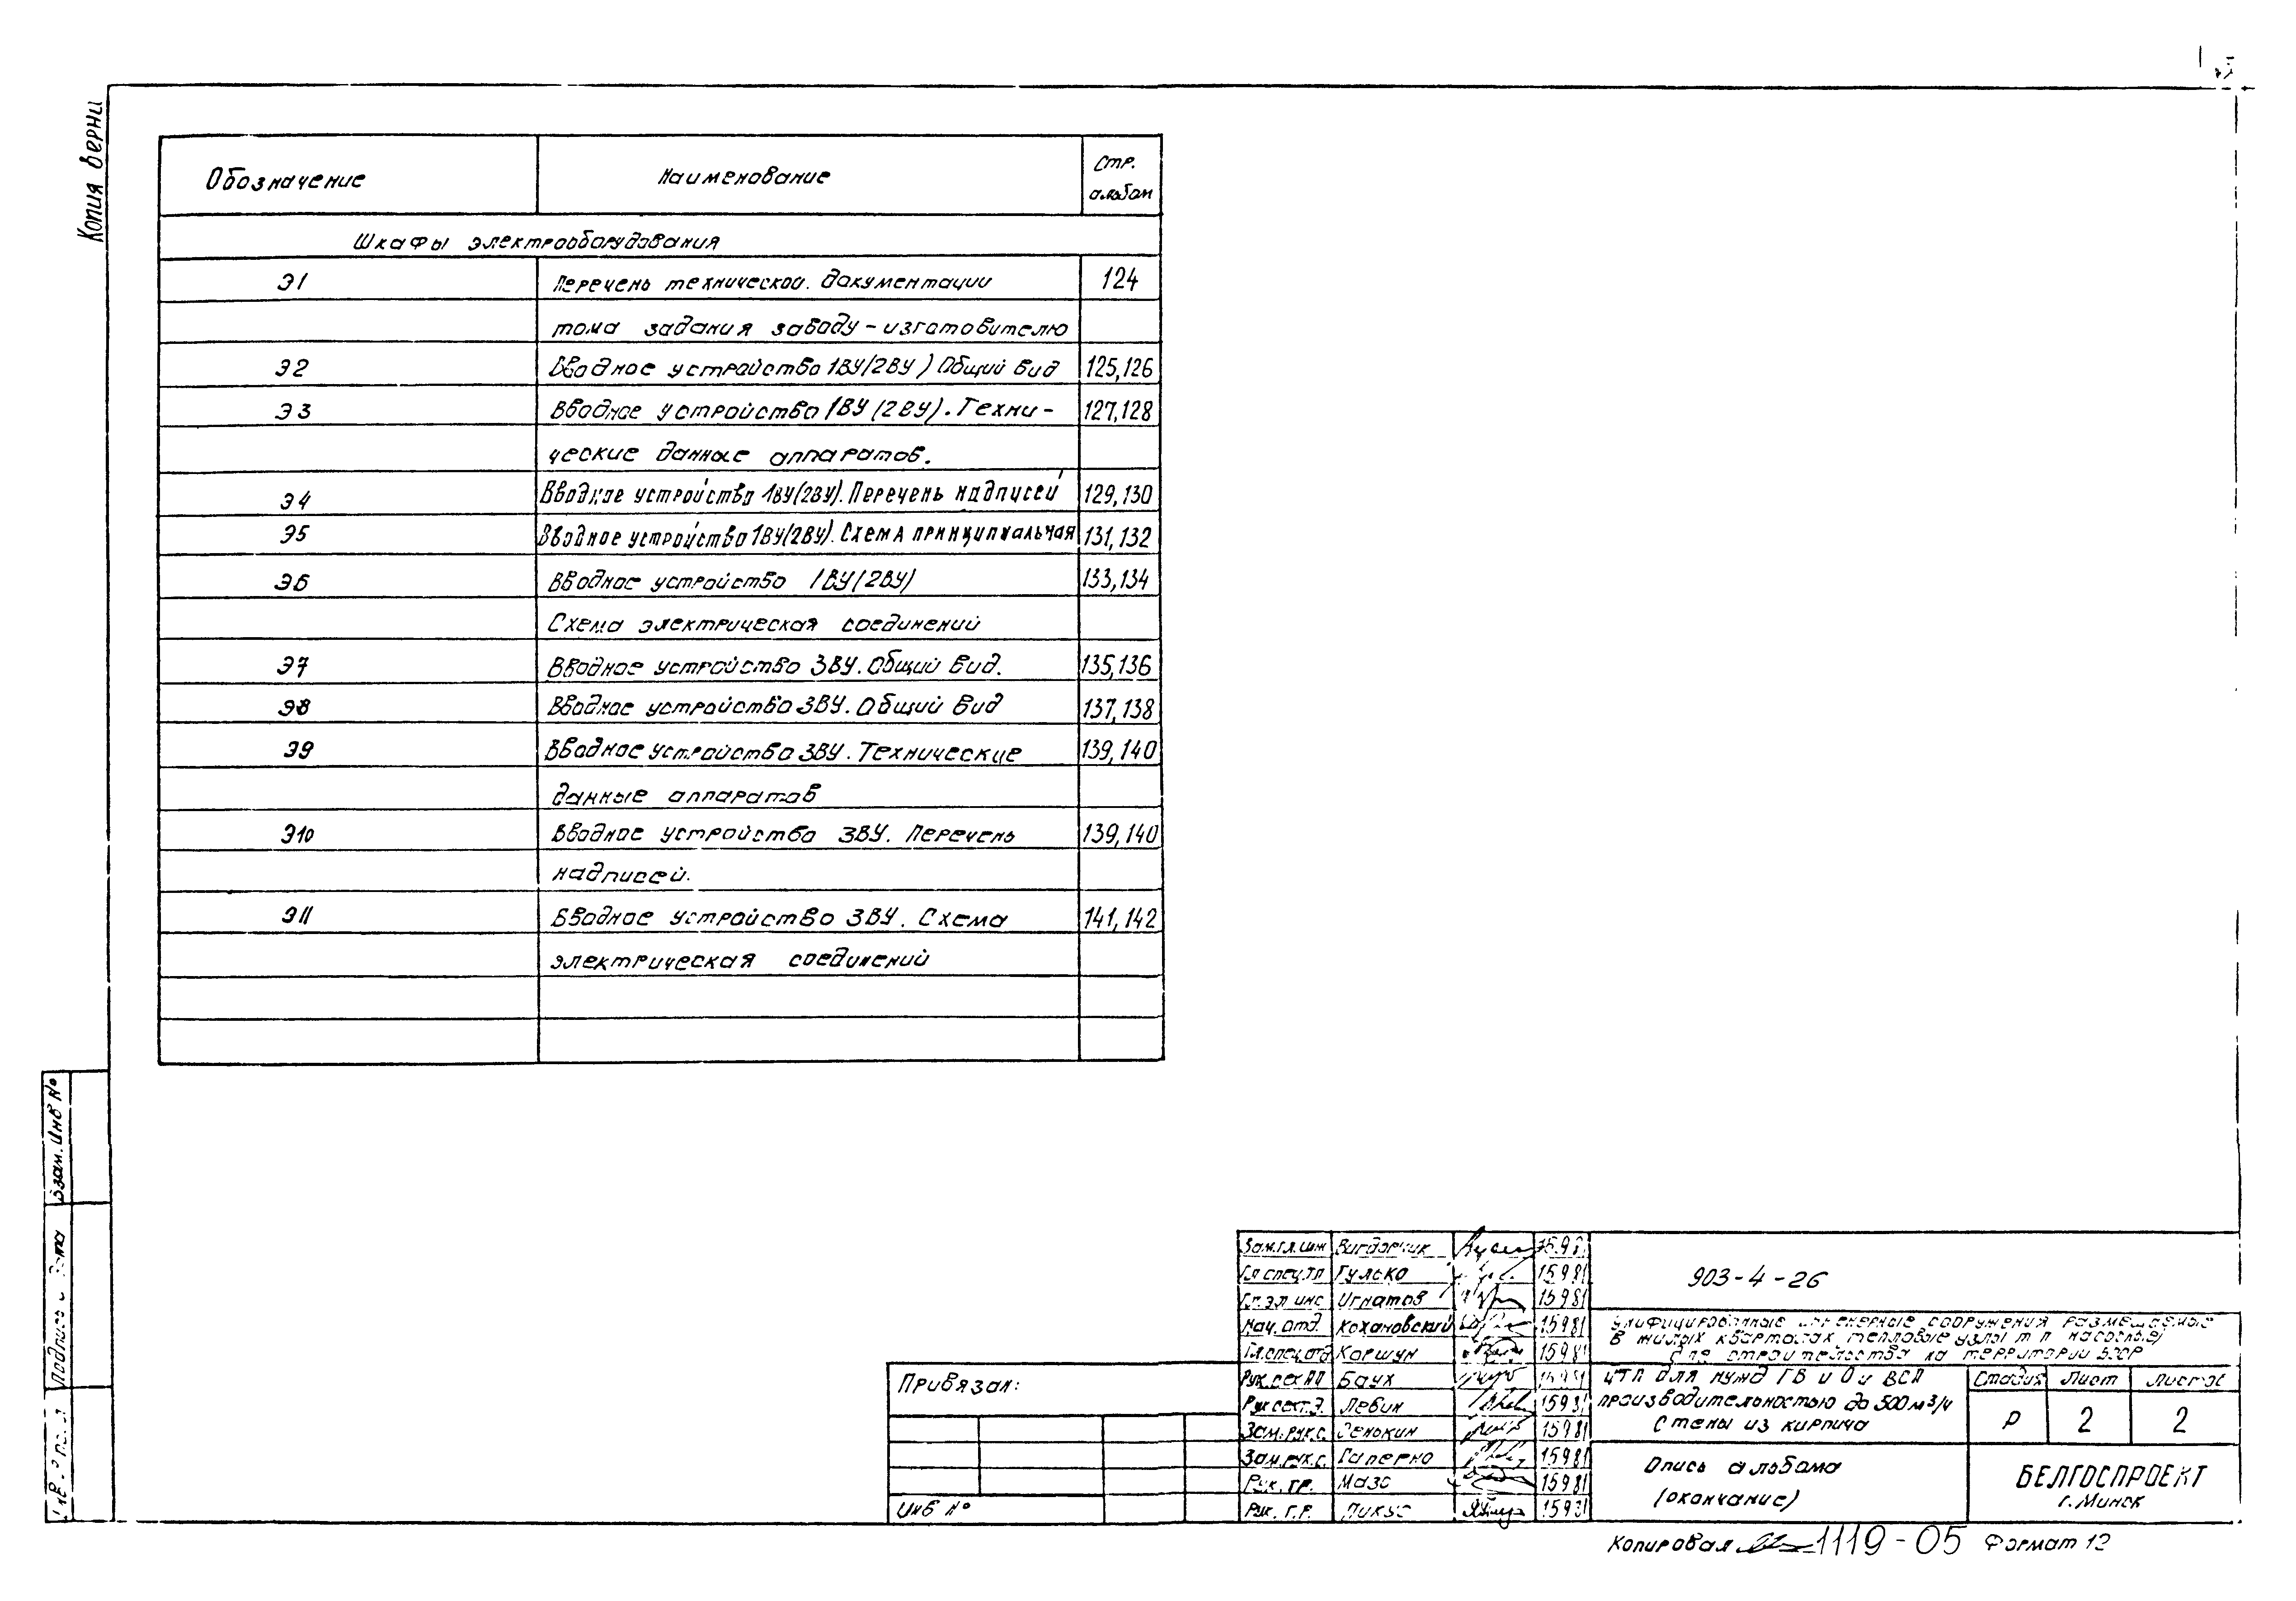 Копия верни
Обозначение Наименование Стр. альбом
Шкафы электрооборудования
Э1 Перечень технической. документации 124
тома задания заводу - изготовителю
Э2 Вводное устройство 1ВУ/2ВУ) Общий вид 125,126
Э3 Вводное устройство 1ВУ(2ВУ). Техни- 127,128
ческие данные аппаратов.
Э4 Вводное устройства 1ВУ(2ВУ). Перечень надписей 129,130
Э5 Вводное устройство 1ВУ(2ВУ). Схема принципиальная 131,132
Э6 Вводное устройство 1ВУ(2ВУ) 133,134
Схема электрическая соединений
Э7 Вводное устройство 3ВУ. Общий вид. 135,136
Э8 Вводное устройство 3ВУ. Общий вид 137,138
Э9 Вводное устройство 3ВУ. Технические 139,140
данные аппаратов
Э10 Вводное устройство 3ВУ. Перечень 139,140
надписей.
Э11 Вводное устройство 3ВУ. Схема 141,142
электрическая соединений
Взам. инв №
Подпись и дата
Привязан:
Инв №
Зам.гл.инж Вигдорчик
Гл спец.тп Гулько 15981
Игнатов 15981
Нач. отд. Кохановский 15981
Гл.спец.отд Коршун 15981
Баух
Рук сект.Э. Левин 15981
Зам. рук.с. Сенокин 15981
Зам. рук.с. Гаперно 15981
Рук. гр. Мазо 15981
Рук. Г.Р. Пикус 15981
903-4-26
Унифицированные инженерные сооружения размещаемые
в жилых кварталах тепловые узлы
для строительства на территории БССР
ЦТП для нужд ГВ и О и ВСП
производительностью до 500 м³/ч
Стены из кирпича
Стадия Лист Листов
Р 2 2
Опись альбома
(окончание)
БЕЛГОСПРОЕКТ
г. Минск
Копировал 1119-05 Формат 12